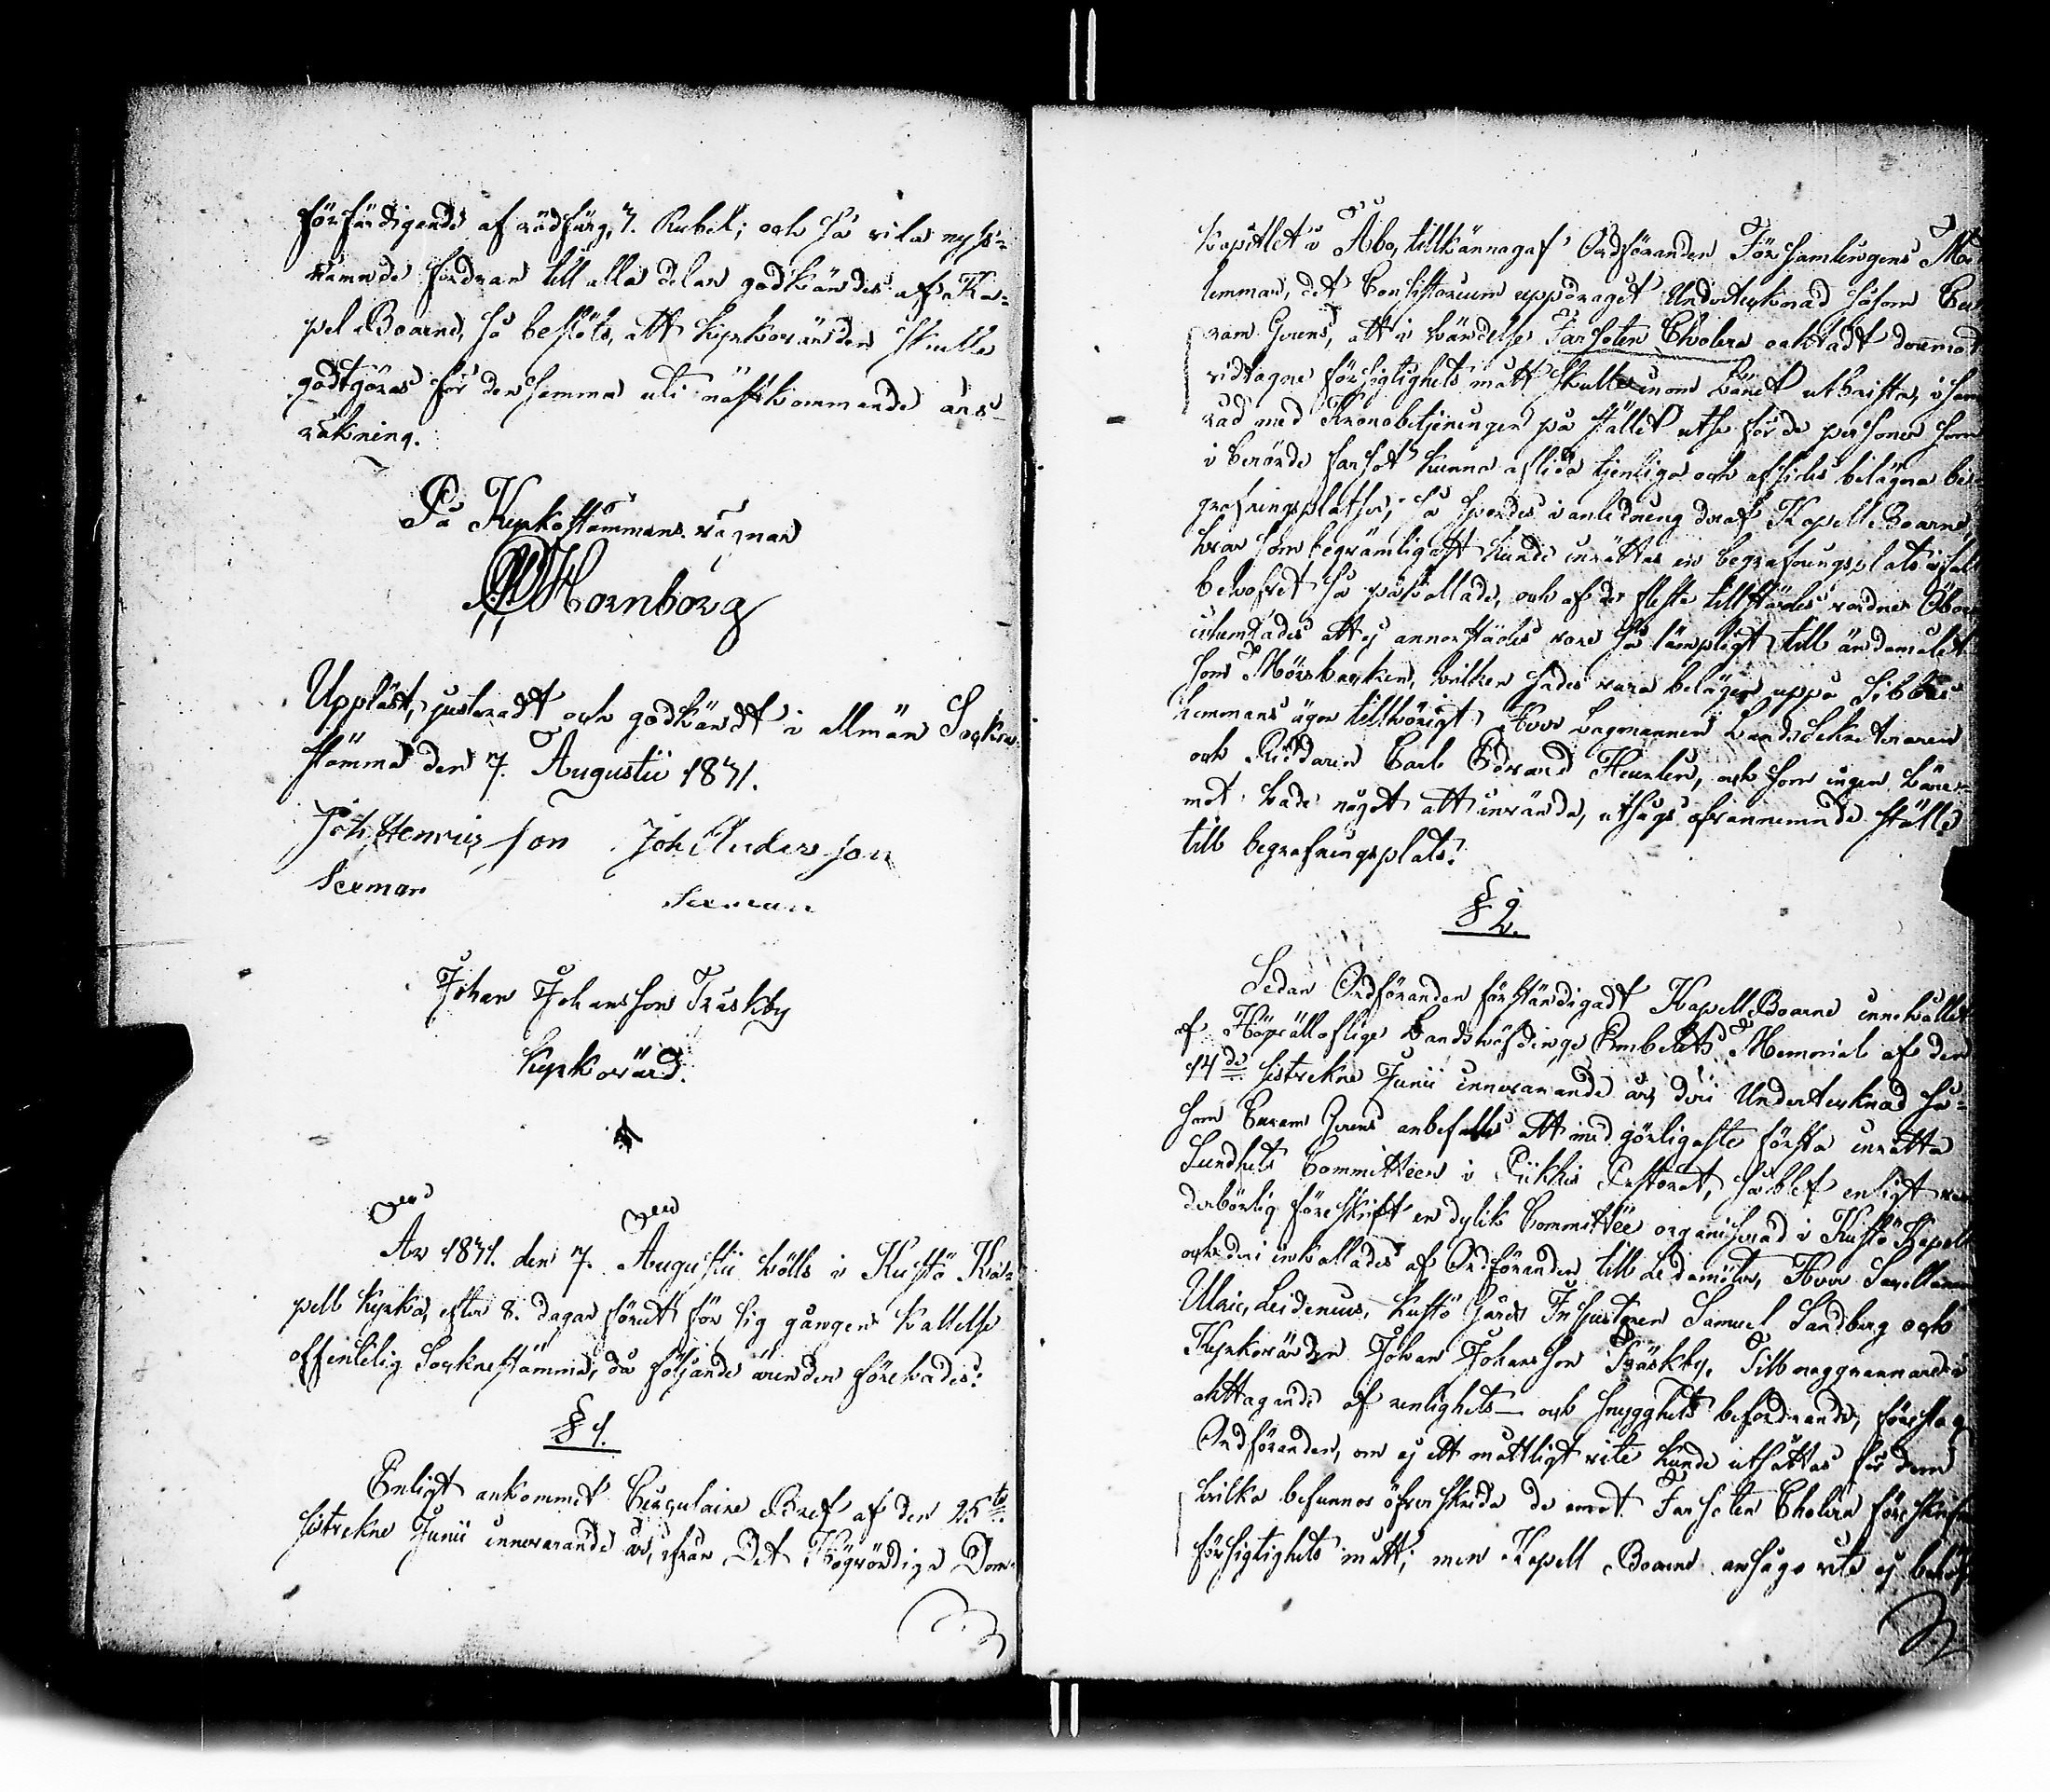 förfärdigande af rödfärg, 7. Rubel; och då vilar nyss-
nämnde fordran till alla delar godkändes af Ka-
pel Boarne, så beslöts, att kyrkovärden skulle
godtgöras för densamma uti nästkommande års
räkning.
På Kyrkostämmans vägnar
Hornborg
Uppläst, justeradt och godkändt i allmän Sockne
stämma den 7. Augustii 1831.
Joh Henricsson Joh Andersson
Sexman Sexman
Johan Johansson Träskby
Kyrkovärd.
År 1831. den 7. Augustii hölls i Kustö Ka-
pell Kyrka, efter 8. dagar förut för sig gången kallelse
offentelig Sockne stämma, då följande ärenden förehades:
§ 1.
Enligt ankommit Circulaire Bref af den 25te
sistvekne Junii innevarande år, ifrån Det Högvördige Dom-
kapitlet i Åbo, tillkännagaf Ordföranden Församlingens
lemmar, det Consistorium uppdragit Undertecknad såsom
ram Gerens, att i händelse Farsoten Cholera oaktadt deremot
vidtagne försigtighets mått skulle inom Länet utbrista, i sam
råd med Kronobetjeningen på stället utse för de personer som
i berörde farsot kunna aflida tjenliga och afsides belägna be-
grafningsplatser; så hördes i anledning deraf Kapell Boarne,
hvar som beqvämligast kunde inrättas en begrafningsplats i fall
behofvet så påkallade, och af de fleste tillstädes vordne Åboer
ej annorstädes vore så lämpligt till ändamålet
som Mörsbacken, hvilken sades vara belägen uppå Sibbes
hemmans ägor tillhörigt Herr Lagmannen LandsSekreteraren
och Riddaren Carl Edvard Heurlin, och som ingen häre-
mot hade något att invända, utsågs ofvannemnde ställe
till begrafningsplats.
§ 2.
Sedan Ordföranden förständigadt Kapell Boarne innehållet
af Höglofliga Landshöfdinge Embetets Memorial af den
14de sistvekne Junii innevarande år, deri Undertecknad så-
som Curam Gerens anbefalles att med görligaste första inrätta
Sundhets Committéer i Pikkis Pastorat, så blef enligt ve-
derbörlig föreskrift en dylik Committée organiserad i Kustö Kapell
och deri inkallades af Ordföranden till Ledamöter, Herr Capellanen
Ulric Leidenius, Kustö Gårds Inspectoren Samuel Sandberg och
Kyrkovärden Johan Johansson Träskby. Till noggrannare i-
akttagande af renlighets- och snygghets befordrande, föreslog
Ordföranden, om ej ett måttligt vite kunde utsättas för dem
hvilka befunnos öfverskrida de emot Farsoten Cholera föreskrifne
försigtighets mått; men Kapell Boarne ansågo vite ej behöf-